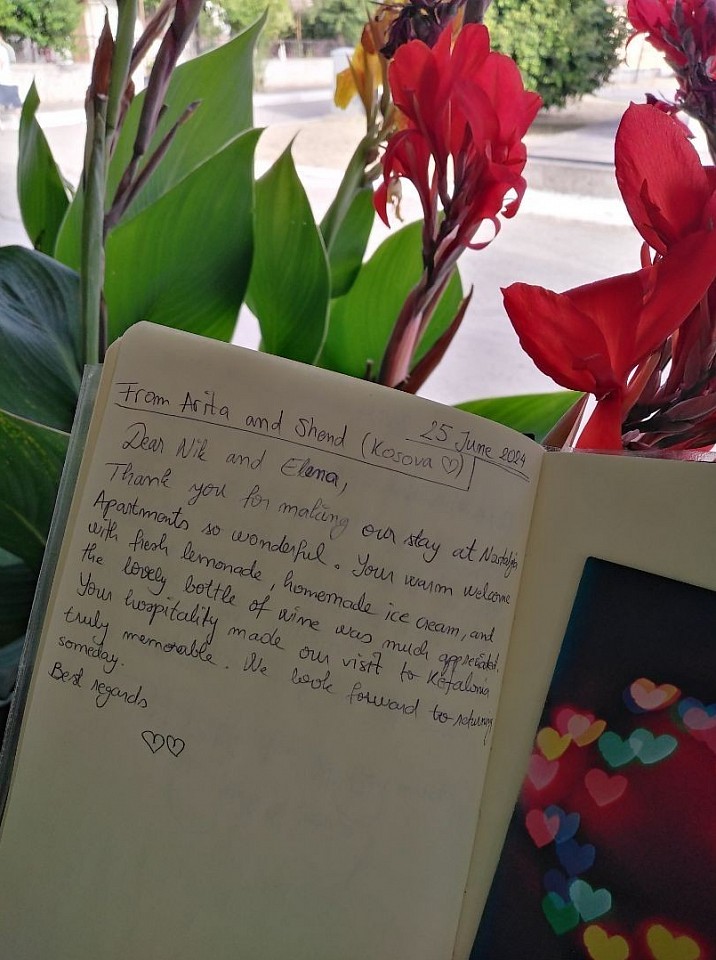 From Arita and Shend (Kosova ♡)
25 June 2024
Dear Nik and Elena,
Thank you for making our stay at Nostalgia
Apartments so wonderful. Your warm welcome
with fresh lemonade, homemade ice cream, and
the lovely bottle of wine was much appreciated.
Your hospitality made our visit to Kefalonia
truly memorable. We look forward to returning
someday.
Best regards
♡♡